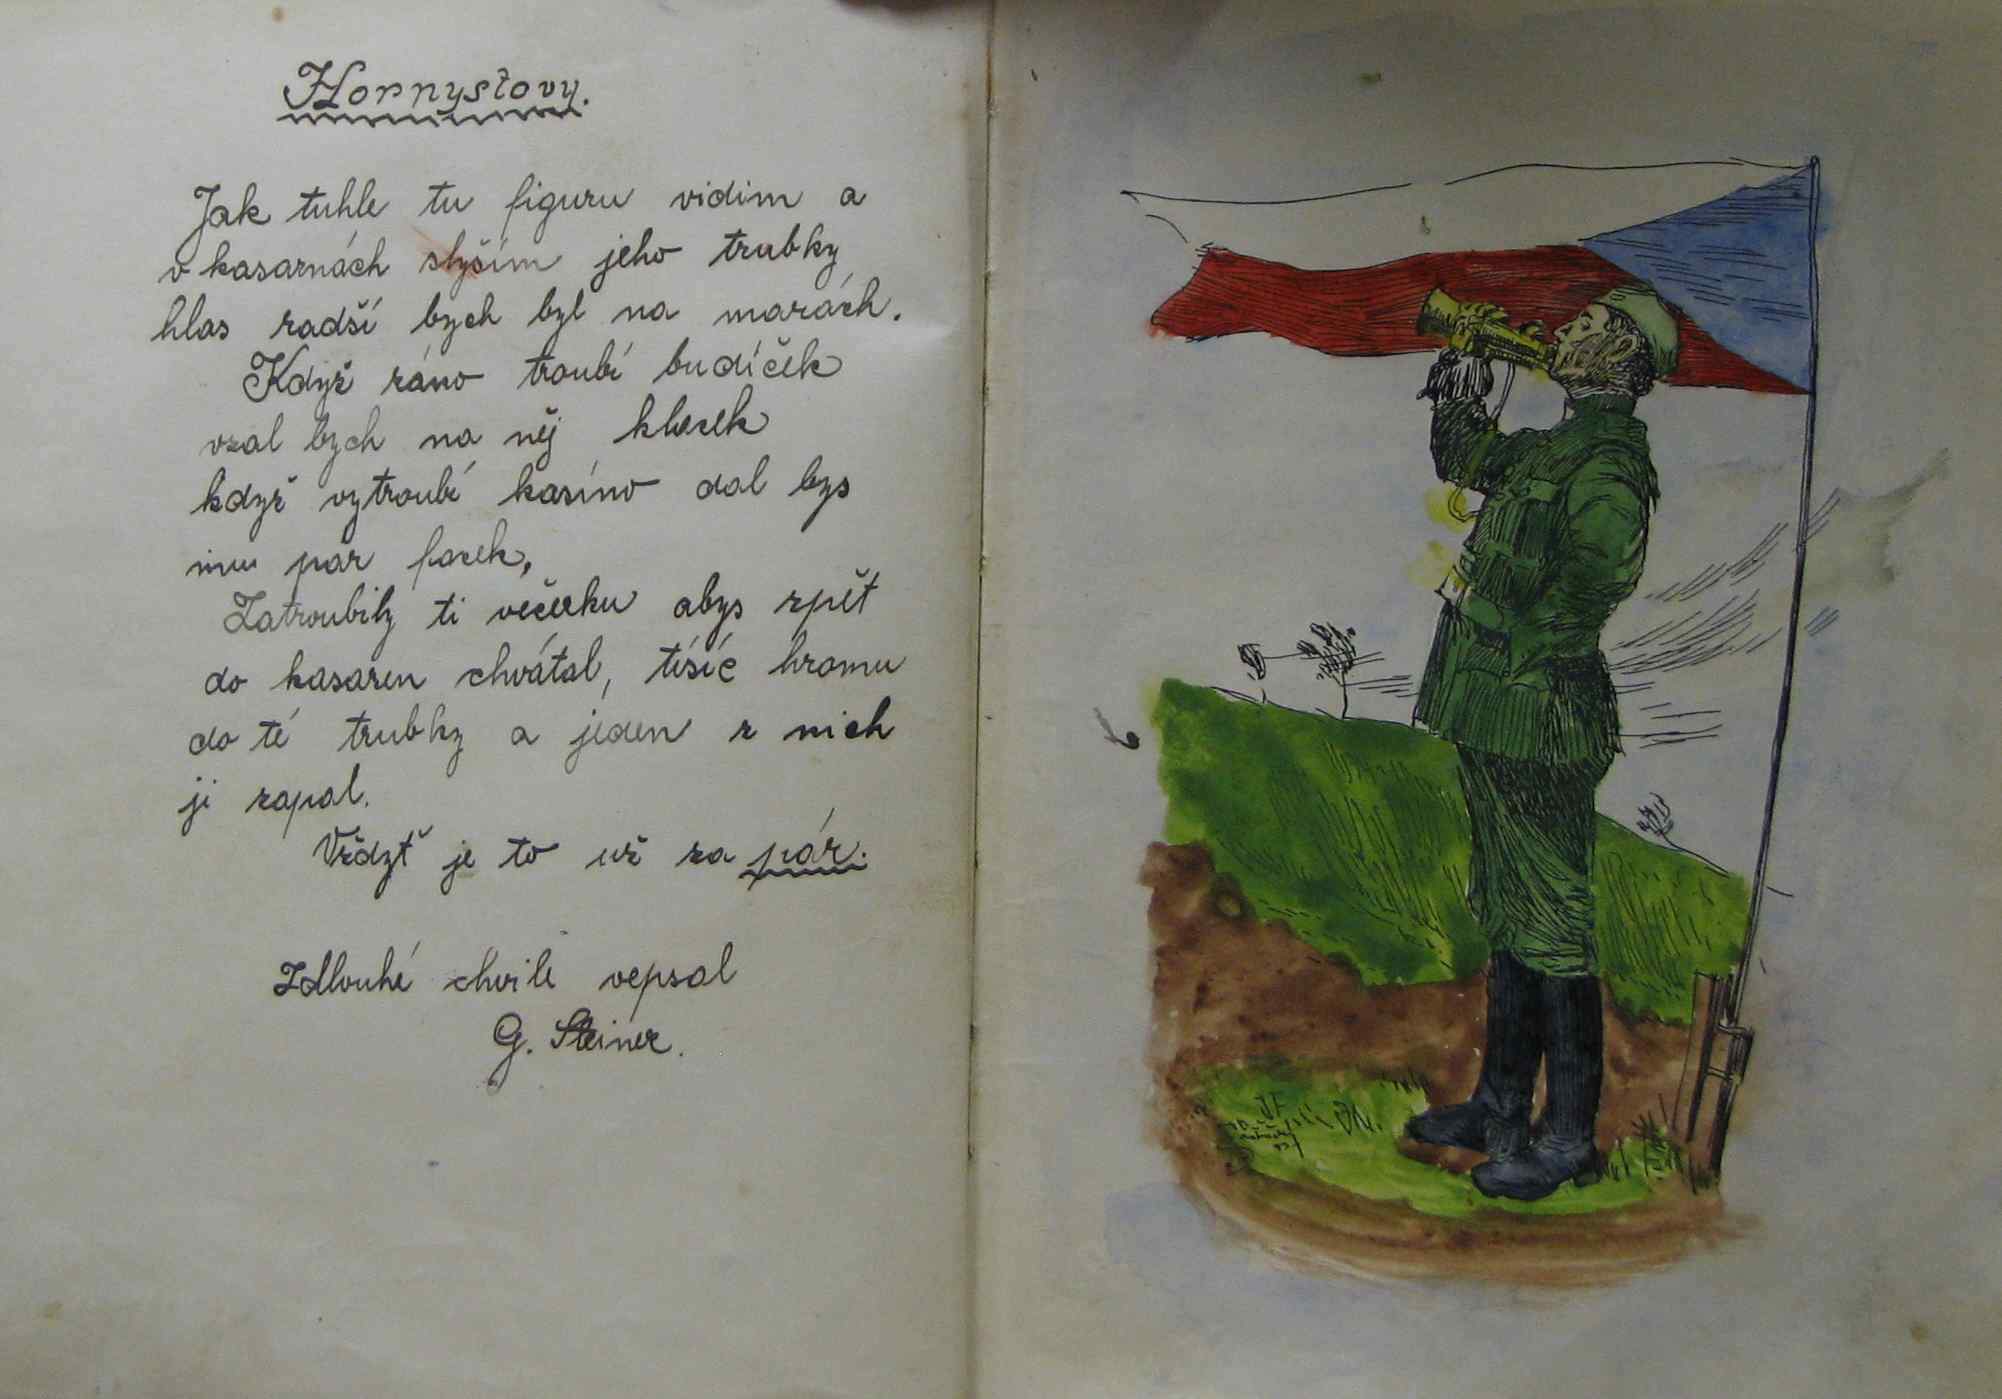 Hornystovy.
Jak tuhle tu figuru vidim a
v kasarnách slyším jeho trubky
hlas radší bych byl na marách.
Když ráno troubí budíček
vzal bych na něj klacek
když vytroubí kasíno dal bys
mu par facek,
Zatroubily ti večerku abys zpět
do kasaren chvátal, tísíc hromu
do té trubky a jeden z nich
ji zapal.
Vždyť je to už za pár.
Z dlouhé chvile vepsal
G. Steiner.